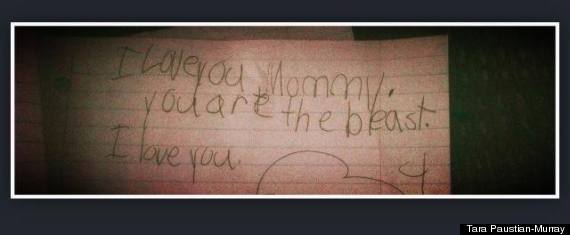 I Love you Mommy.
you are the beast.
I love you.
Tara Paustian-Murray